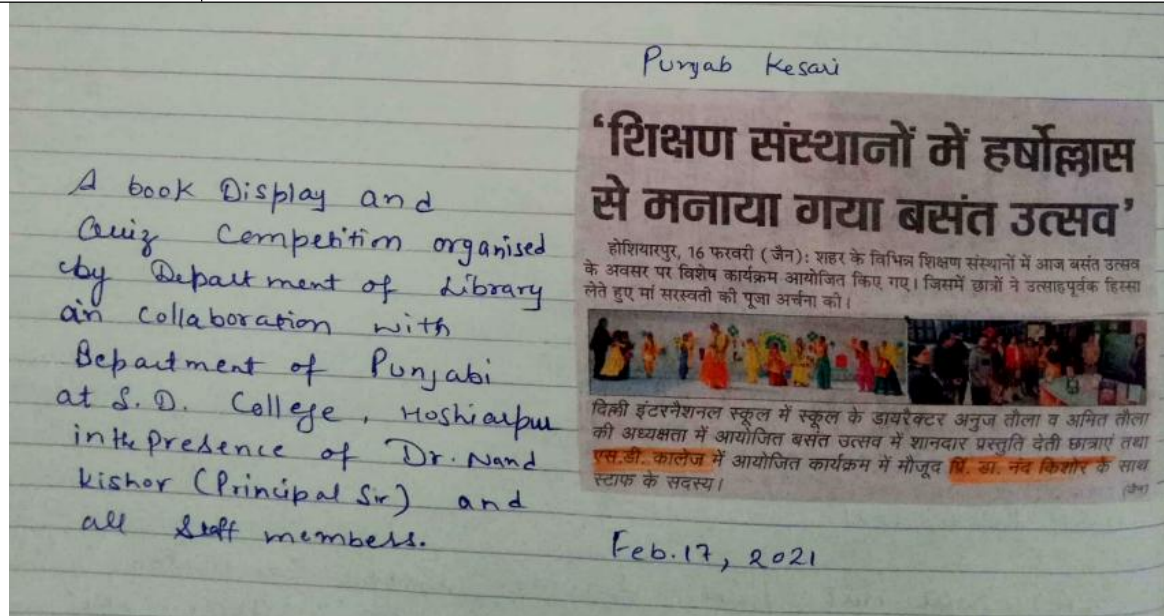 Punjab Kesari
A book Display and
Quiz Competition organised
by Department of Library
in collaboration with
Department of Punjabi
at S.D. College, Hoshiarpur
in the Presence of Dr. Nand
Kishor (Principal Sir) and
all Staff members.
‘शिक्षण संस्थानों में हर्षोल्लास
से मनाया गया बसंत उत्सव’
होशियारपुर, 16 फरवरी (जैन): शहर के विभिन्न शिक्षण संस्थानों में आज बसंत उत्सव
के अवसर पर विशेष कार्यक्रम आयोजित किए गए। जिसमें छात्रों ने उत्साहपूर्वक हिस्सा
लेते हुए मां सरस्वती की पूजा अर्चना की।
दिल्ली इंटरनैशनल स्कूल में स्कूल के डायरैक्टर अनुज तौला व अमित तौला
की अध्यक्षता में आयोजित बसंत उत्सव में शानदार प्रस्तुति देती छात्राएं तथा
एस.डी. कालेज में आयोजित कार्यक्रम में मौजूद प्रिं. डा. नंद किशोर के साथ
स्टाफ के सदस्य।
(जैन)
Feb. 17, 2021